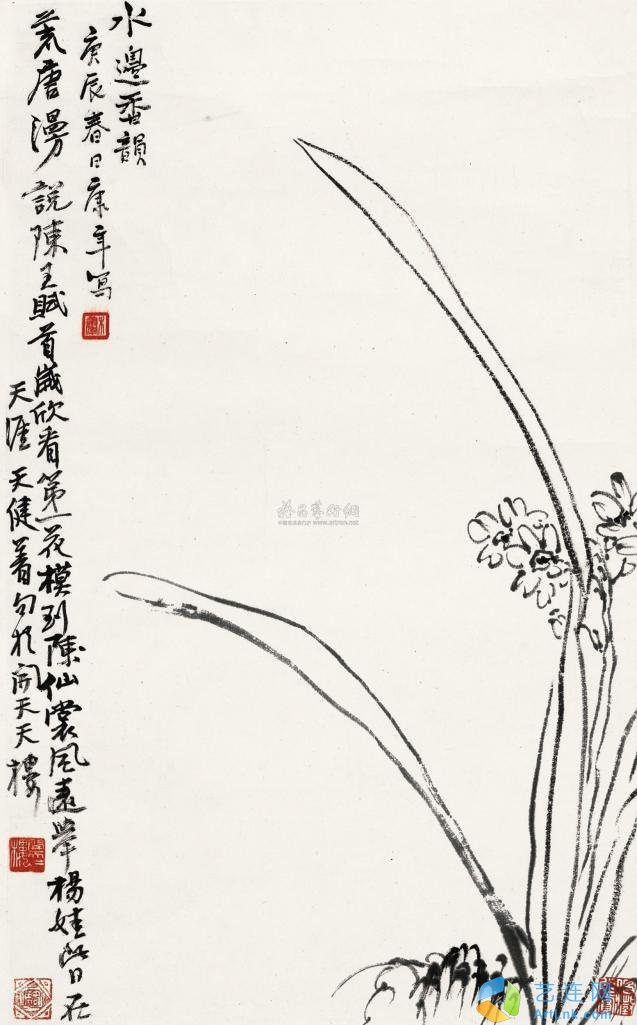 水邊香韻
庚辰春日康年寫
荒唐漫說陳王賦首歲欣看第一花模到陳仙裳風遠舉楊娃昔日在
天涯 天健著句於開天天樓
艺连网
ArtLnk.com